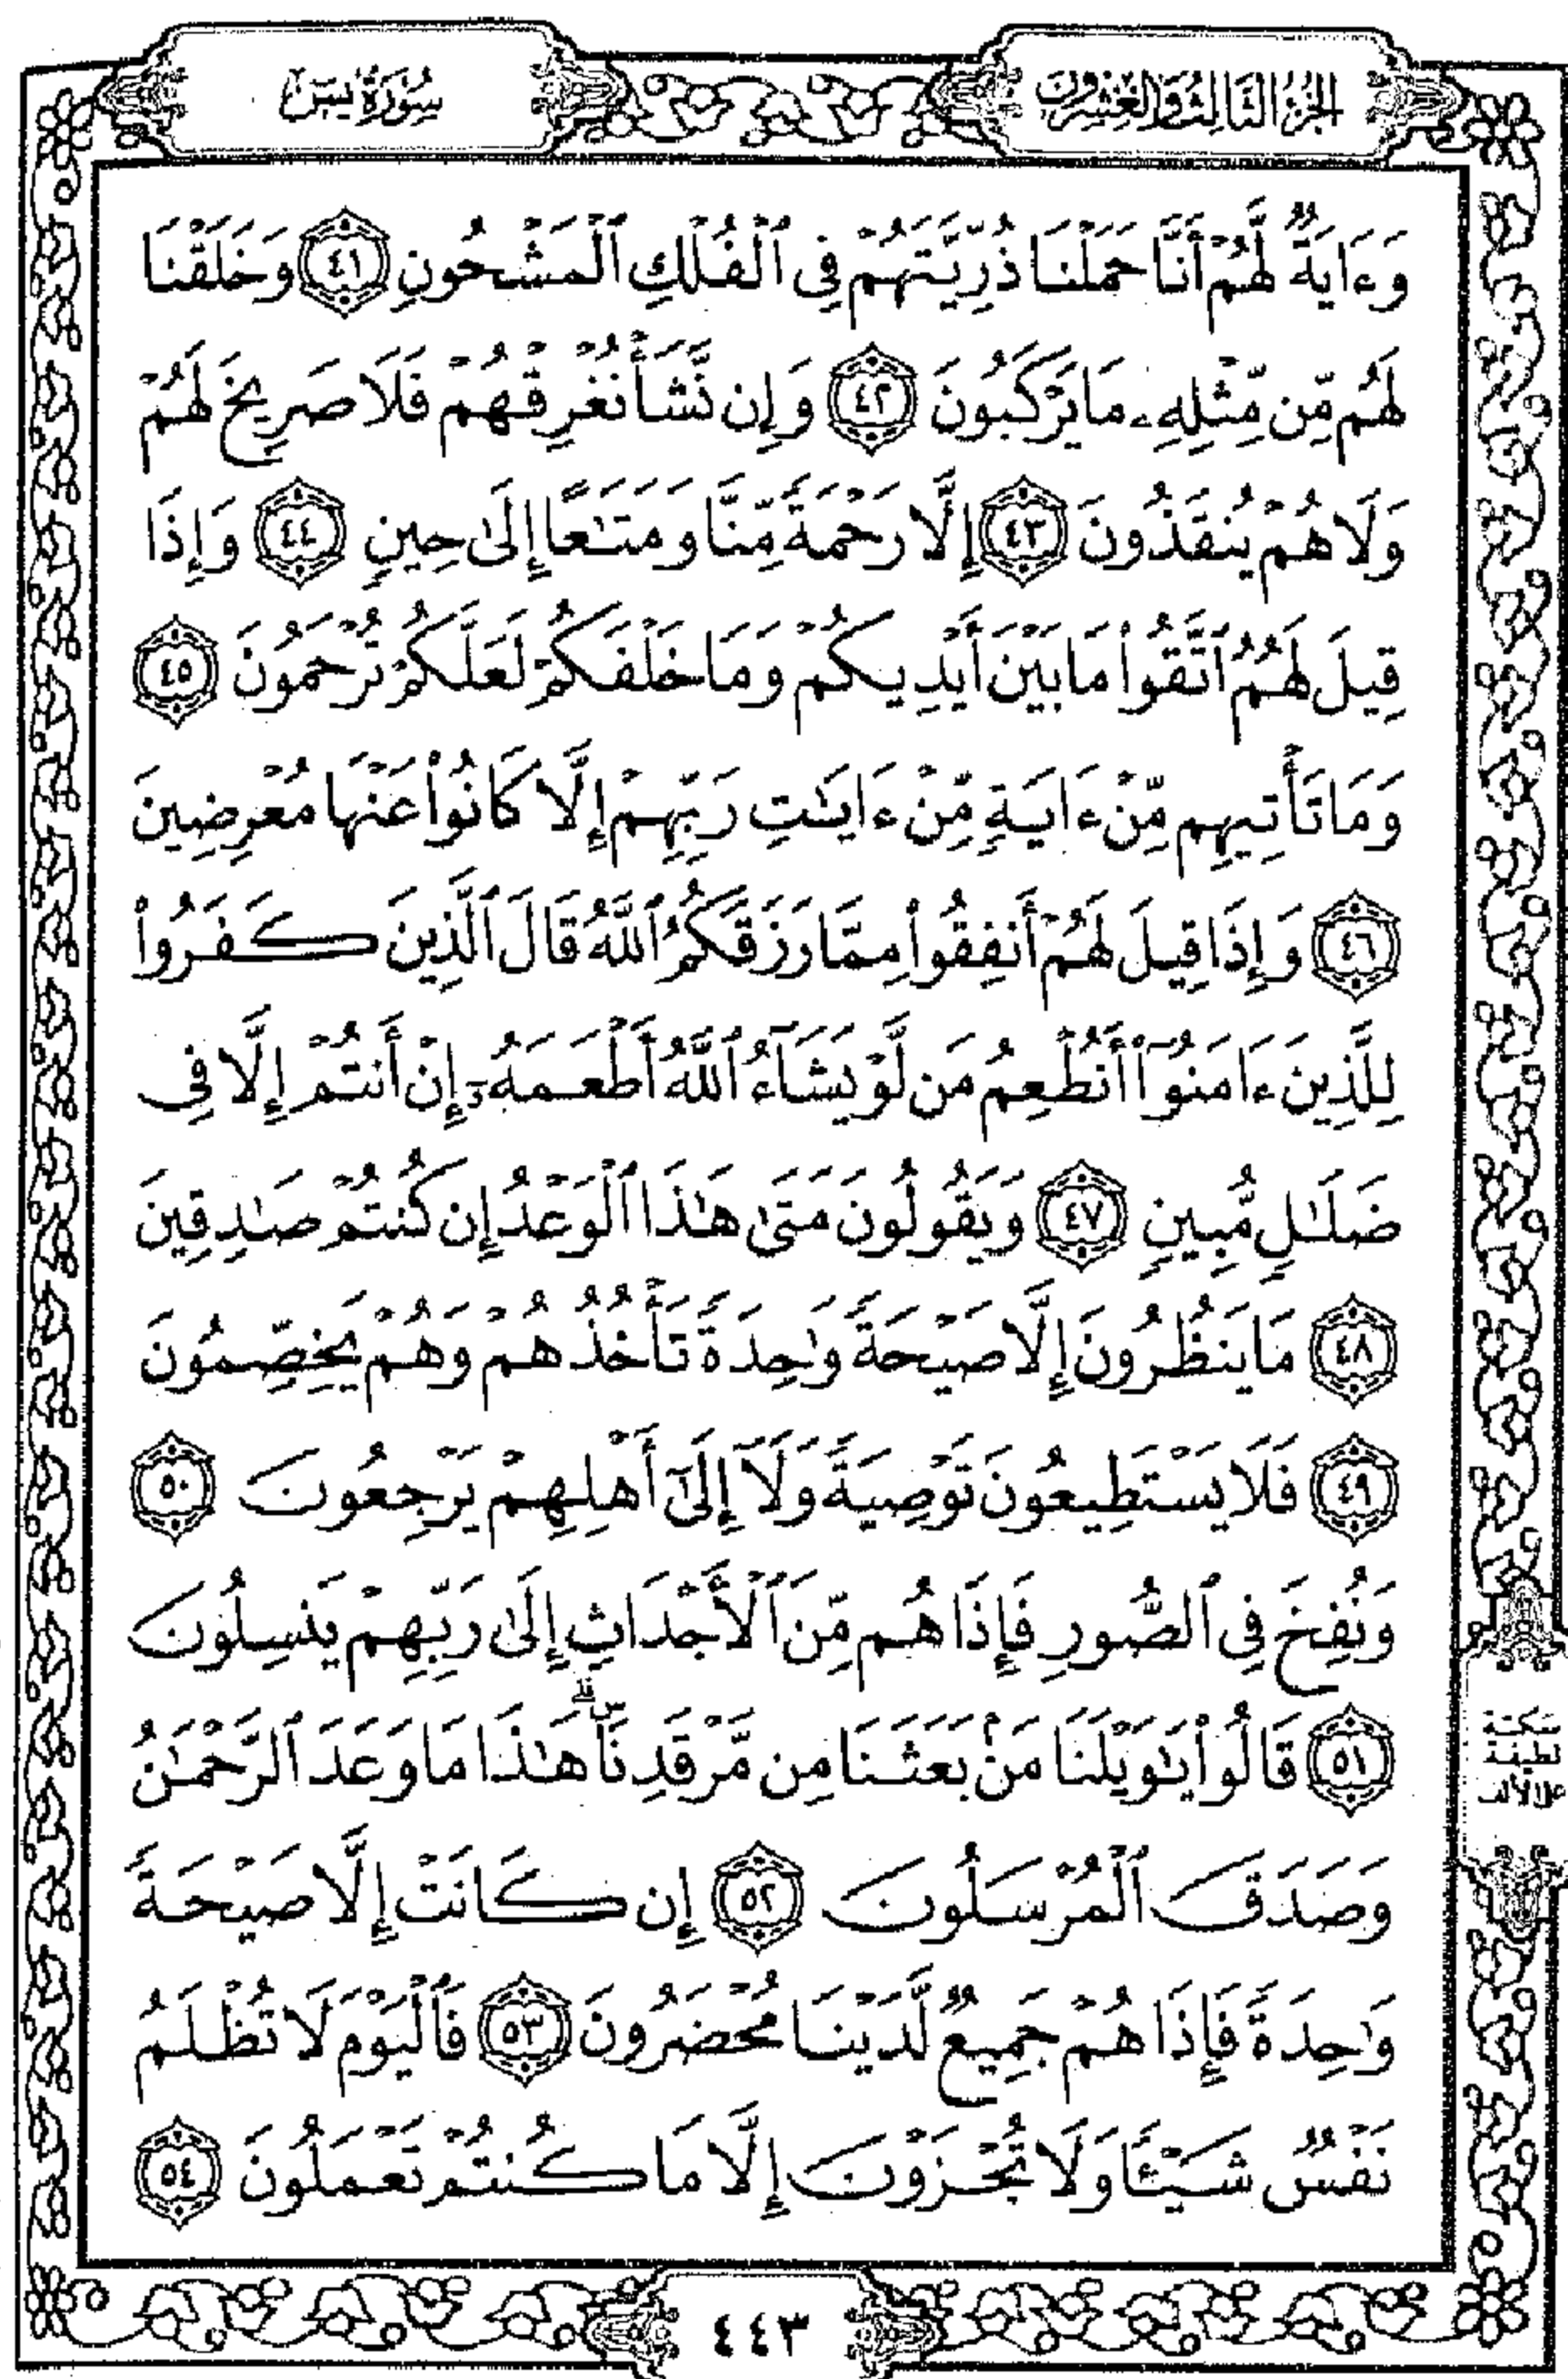 الجزء الثالث والعشرون
سورة يس
وَءَايَةٌ لَّهُمْ أَنَّا حَمَلْنَا ذُرِّيَّتَهُمْ فِى ٱلْفُلْكِ ٱلْمَشْحُونِ ٤١ وَخَلَقْنَا
لَهُم مِّن مِّثْلِهِۦ مَا يَرْكَبُونَ ٤٢ وَإِن نَّشَأْ نُغْرِقْهُمْ فَلَا صَرِيخَ لَهُمْ
وَلَا هُمْ يُنقَذُونَ ٤٣ إِلَّا رَحْمَةً مِّنَّا وَمَتَٰعًا إِلَىٰ حِينٍ ٤٤ وَإِذَا
قِيلَ لَهُمُ ٱتَّقُوا۟ مَا بَيْنَ أَيْدِيكُمْ وَمَا خَلْفَكُمْ لَعَلَّكُمْ تُرْحَمُونَ ٤٥
وَمَا تَأْتِيهِم مِّنْ ءَايَةٍ مِّنْ ءَايَٰتِ رَبِّهِمْ إِلَّا كَانُوا۟ عَنْهَا مُعْرِضِينَ
٤٦ وَإِذَا قِيلَ لَهُمْ أَنفِقُوا۟ مِمَّا رَزَقَكُمُ ٱللَّهُ قَالَ ٱلَّذِينَ كَفَرُوا۟
لِلَّذِينَ ءَامَنُوٓا۟ أَنُطْعِمُ مَن لَّوْ يَشَآءُ ٱللَّهُ أَطْعَمَهُۥٓ إِنْ أَنتُمْ إِلَّا فِى
ضَلَٰلٍ مُّبِينٍ ٤٧ وَيَقُولُونَ مَتَىٰ هَٰذَا ٱلْوَعْدُ إِن كُنتُمْ صَٰدِقِينَ
٤٨ مَا يَنظُرُونَ إِلَّا صَيْحَةً وَٰحِدَةً تَأْخُذُهُمْ وَهُمْ يَخِصِّمُونَ
٤٩ فَلَا يَسْتَطِيعُونَ تَوْصِيَةً وَلَآ إِلَىٰٓ أَهْلِهِمْ يَرْجِعُونَ ٥٠
وَنُفِخَ فِى ٱلصُّورِ فَإِذَا هُم مِّنَ ٱلْأَجْدَاثِ إِلَىٰ رَبِّهِمْ يَنسِلُونَ
٥١ قَالُوا۟ يَٰوَيْلَنَا مَنۢ بَعَثَنَا مِن مَّرْقَدِنَا ۜ ۗ هَٰذَا مَا وَعَدَ ٱلرَّحْمَٰنُ
وَصَدَقَ ٱلْمُرْسَلُونَ ٥٢ إِن كَانَتْ إِلَّا صَيْحَةً
وَٰحِدَةً فَإِذَا هُمْ جَمِيعٌ لَّدَيْنَا مُحْضَرُونَ ٥٣ فَٱلْيَوْمَ لَا تُظْلَمُ
نَفْسٌ شَيْـًٔا وَلَا تُجْزَوْنَ إِلَّا مَا كُنتُمْ تَعْمَلُونَ ٥٤
سكتة
لطيفة
على الألف
٤٤٣